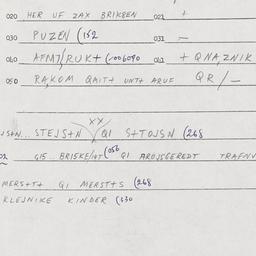 020 HER UF ZAX BRIKSEN 021 +
030 PUZEN (152 031 –
040 AFMJ/RUK+ (-006090 041 + QNA,ZNIK
050 RA,KOM QAIT+ UNT+ ARUF QR/-
XX
STEJS+N QI S+TOJSN (268
GIS BRISKE/NT (056 QI AROJSGEREDT TRAFNV
MERS+T+ QI MERST+S (268
KLEJNIKE KINDER (330